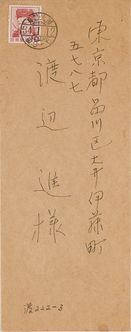 東京都品川区大井伊藤町
五七八七
渡辺進様
渡222-3